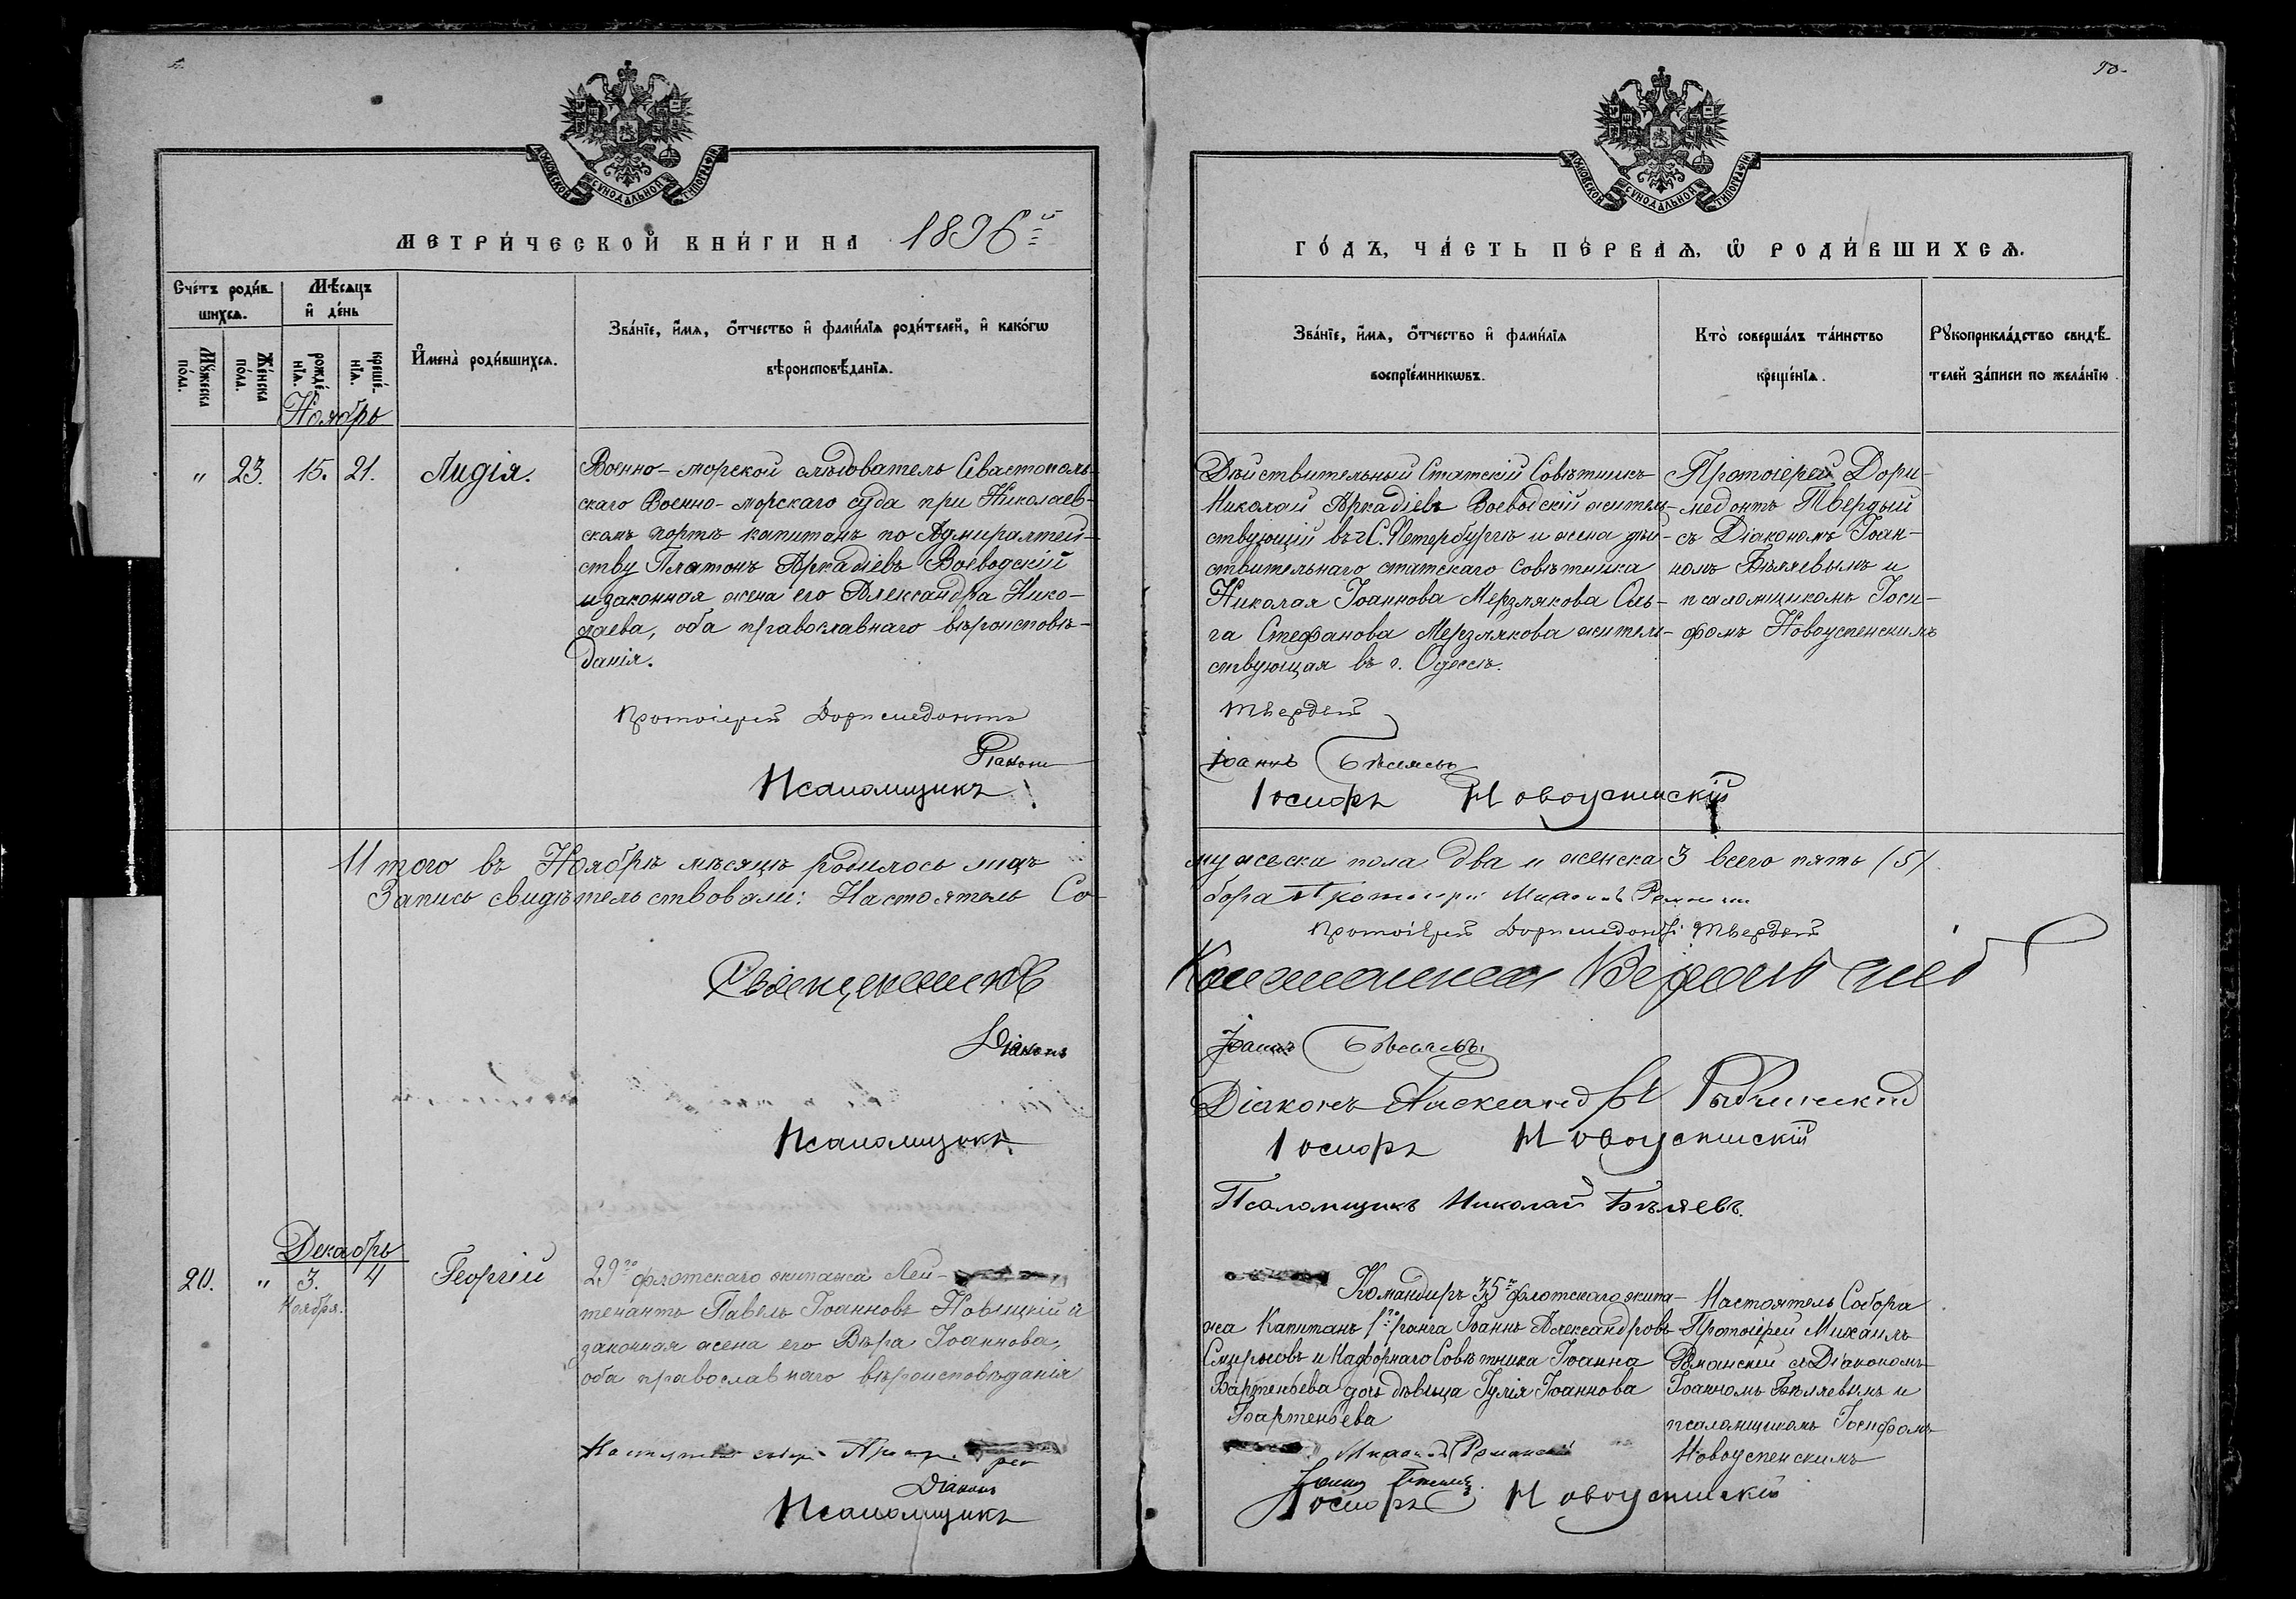 50.
МОСКОВСКОЙ СѴНОДАЛЬНОЙ ТИПОГРАФІИ
МЕТРИ́ЧЕСКОЙ КНИ́ГИ НА 1896й
Сче́тъ роди́в-
шихсѧ.
Мѣ́сѧцъ
и҆ де́нь
Мꙋ́жеска по́ла.
Же́нска по́ла.
рожде́нїѧ.
креще́нїѧ.
И҆мена̀ роди́вшихсѧ.
Зва́нїе, и҆́мѧ, ѻ҆́тчество и҆ фами́лїѧ роди́телей, и҆ како́гѡ
вѣроисповѣ́данїѧ.
Ноябрь
" 23. 15. 21. Лидія.
Военно-морской слѣдователь Севастополь-
скаго Военно-морскаго суда при Николаев-
скомъ портѣ капитанъ по Адмиралтей-
ству Платонъ Аркадіевъ Воеводскій
и законная жена его Александра Нико-
лаева, оба православнаго вѣроисповѣ-
данія.
Протоіерей Доримедонтъ
Діаконъ
Псаломщикъ
Итого въ Ноябрѣ мѣсяцѣ родилось лицъ
Запись свидѣтельствовали: Настоятель Со-
Священникъ
Діаконъ
Псаломщикъ
Декабрь
20. " 3. 4 Георгій
Ноября.
29го флотскаго экипажа Лей-
тенантъ Павелъ Іоанновъ Новицкій и
законная жена его Вѣра Іоаннова,
оба православнаго вѣроисповѣданія
Діаконъ
Псаломщикъ
МОСКОВСКОЙ СѴНОДАЛЬНОЙ ТИПОГРАФІИ
ГО́ДЪ, ЧА́СТЬ ПЕ́РВАѦ, Ѡ҆ РОДИ́ВШИХСѦ.
Зва́нїе, и҆́мѧ, ѻ҆́тчество и҆ фами́лїѧ
воспрїе́мникѡвъ.
Кто̀ соверша́лъ та́инство
креще́нїѧ.
Рꙋкоприкла́дство свидѣ́-
телей за́писи по жела́нїю.
Дѣйствительный Статскій Совѣтникъ
Николай Аркадіевъ Воеводскій житель-
ствующій въ г. С. Петербургѣ и жена дѣй-
ствительнаго статскаго совѣтника
Николая Іоаннова Мерзлякова Оль-
га Стефанова Мерзлякова житель-
ствующая въ г. Одессѣ.
Протоіерей Дори-
медонтъ Твердый
съ Діакономъ Іоан-
номъ Бѣляевымъ и
псаломщикомъ Іоси-
фомъ Новоуспенскимъ
Твердый
Іоаннъ Бѣляевъ
Іосифъ Новоуспенскій
мужеска пола два и женска 3 всего пять (5).
бора Протоіерей Михаилъ Романскій
Протоіерей Доримедонтъ Твердый
Іоаннъ Бѣляевъ.
Діаконъ Александръ
Іосифъ Новоуспенскій
Псаломщикъ Николай Бѣляевъ.
Командиръ 35го флотскаго экипа-
жа Капитанъ 1го ранга Іоаннъ Александровъ
Смирновъ и Надворнаго Совѣтника Іоанна
Бартеньева дочь дѣвица Іулія Іоаннова
Бартеньева
Настоятель Собора
Протоіерей Михаилъ
Романскій съ Діакономъ
Іоанномъ Бѣляевымъ и
псаломщикомъ Іосифомъ
Новоуспенскимъ
Михаилъ Романскій
Іоаннъ Бѣляевъ.
Іосифъ Новоуспенскій